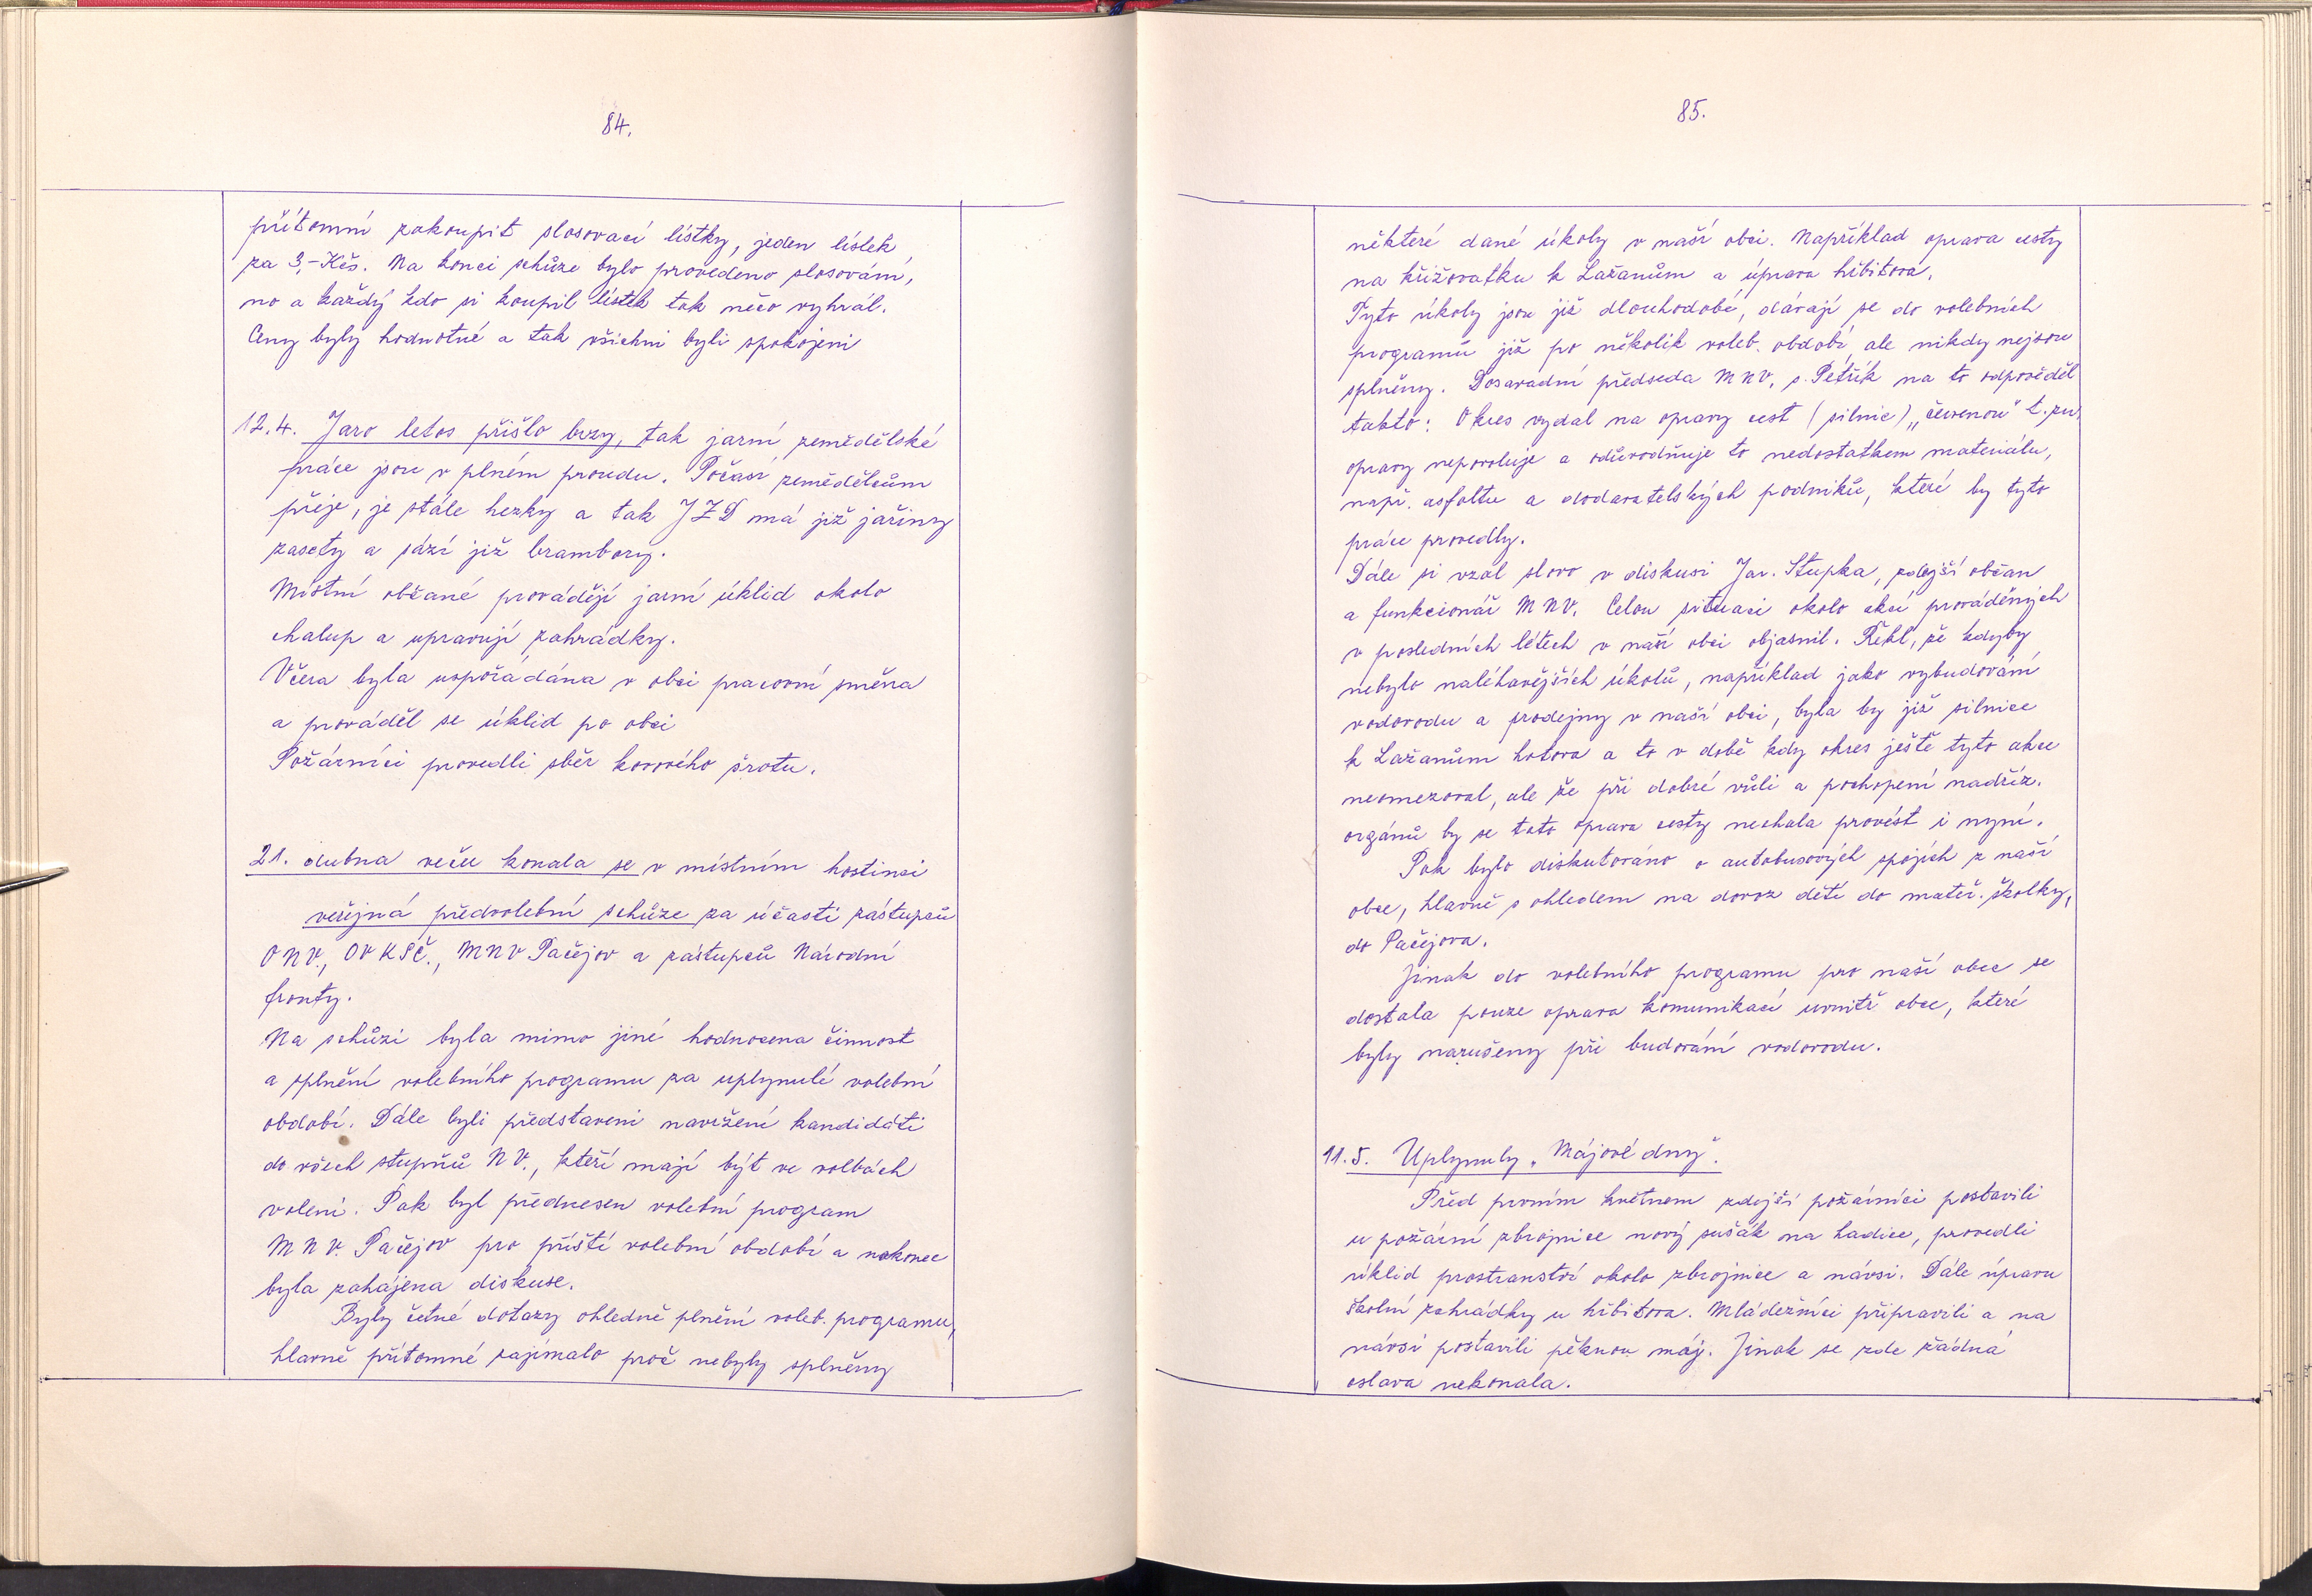 84.
přítomní zakoupit slosovací lístky, jeden lístek
za 3,- Kčs. Na konci schůze bylo provedeno slosování,
no a každý kdo si koupil lístek tak něco vyhrál.
Ceny byly hodnotné a tak všichni byli spokojeni
12.4. Jaro letos přišlo brzy, tak jarní zemědělské
práce jsou v plném proudu. Počasí zemědělcům
přeje, je stále hezky a tak JZD má již jařiny
zasety a sází již brambory.
Místní občané provádějí jarní úklid okolo
chalup a upravují zahrádky.
Včera byla uspořádána v obci pracovní směna
a prováděl se úklid po obci
Požárníci provedli sběr kovového šrotu.
21. dubna večer konala se v místním hostinci
veřejná předvolební schůze za účasti zástupců
ONV., OV KSČ., MNV Pačejov a zástupců Národní
fronty.
Na schůzi byla mimo jiné hodnocena činnost
a splnění volebního programu za uplynulé volební
období. Dále byli představeni navržení kandidáti
do všech stupňů NV., kteří mají být ve volbách
voleni. Pak byl přednesen volební program
MNV. Pačejov pro příští volební období a nakonec
byla zahájena diskuse.
Byly četné dotazy ohledně plnění voleb. programu,
hlavně přítomné zajímalo proč nebyly splněny
85.
některé dané úkoly v naší obci. Například oprava cesty
na křižovatku k Lažanům a úprava hřbitova.
Tyto úkoly jsou již dlouhodobé, dávají se do volebních
programů již po několik voleb. období, ale nikdy nejsou
splněny. Dosavadní předseda MNV, s. Petřík na to odpověděl
takto: Okres vydal na opravy cest (silnic) „červenou" t.zn.
opravy nepovoluje a odůvodňuje to nedostatkem materiálu,
např. asfaltu a dodavatelských podniků, které by tyto
práce provedly.
Dále si vzal slovo v diskusi Jar. Stupka, zdejší občan
a funkcionář MNV. Celou situaci okolo akcí prováděných
v posledních létech v naší obci objasnil. Řekl, že kdyby
nebylo naléhavějších úkolů, například jako vybudování
vodovodu a prodejny v naší obci, byla by již silnice
k Lažanům hotova a to v době kdy okres ještě tyto akce
neomezoval, ale že při dobré vůli a pochopení nadříz.
orgánů by se tato oprava cesty nechala provést i nyní.
Pak bylo diskutováno o autobusových spojích z naší
obce, hlavně s ohledem na dovoz dětí do mateř. školky,
do Pačejova.
Jinak do volebního programu pro naší obec se
dostala pouze oprava komunikací uvnitř obce, které
byly narušeny při budování vodovodu.
11.5. Uplynuly „Májové dny".
Před prvním květnem zdejší požárníci postavili
u požární zbrojnice nový sušák na hadice, provedli
úklid prostranství okolo zbrojnice a návsi. Dále úpravu
školní zahrádky u hřbitova. Mládežníci připravili a na
návsi postavili pěknou máj. Jinak se zde žádná
oslava nekonala.